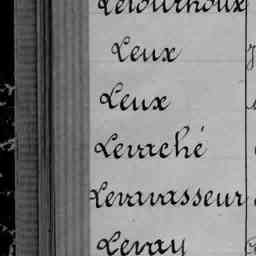 Letournoux
Leux
Leux
Levaché
Levavasseur
Levay